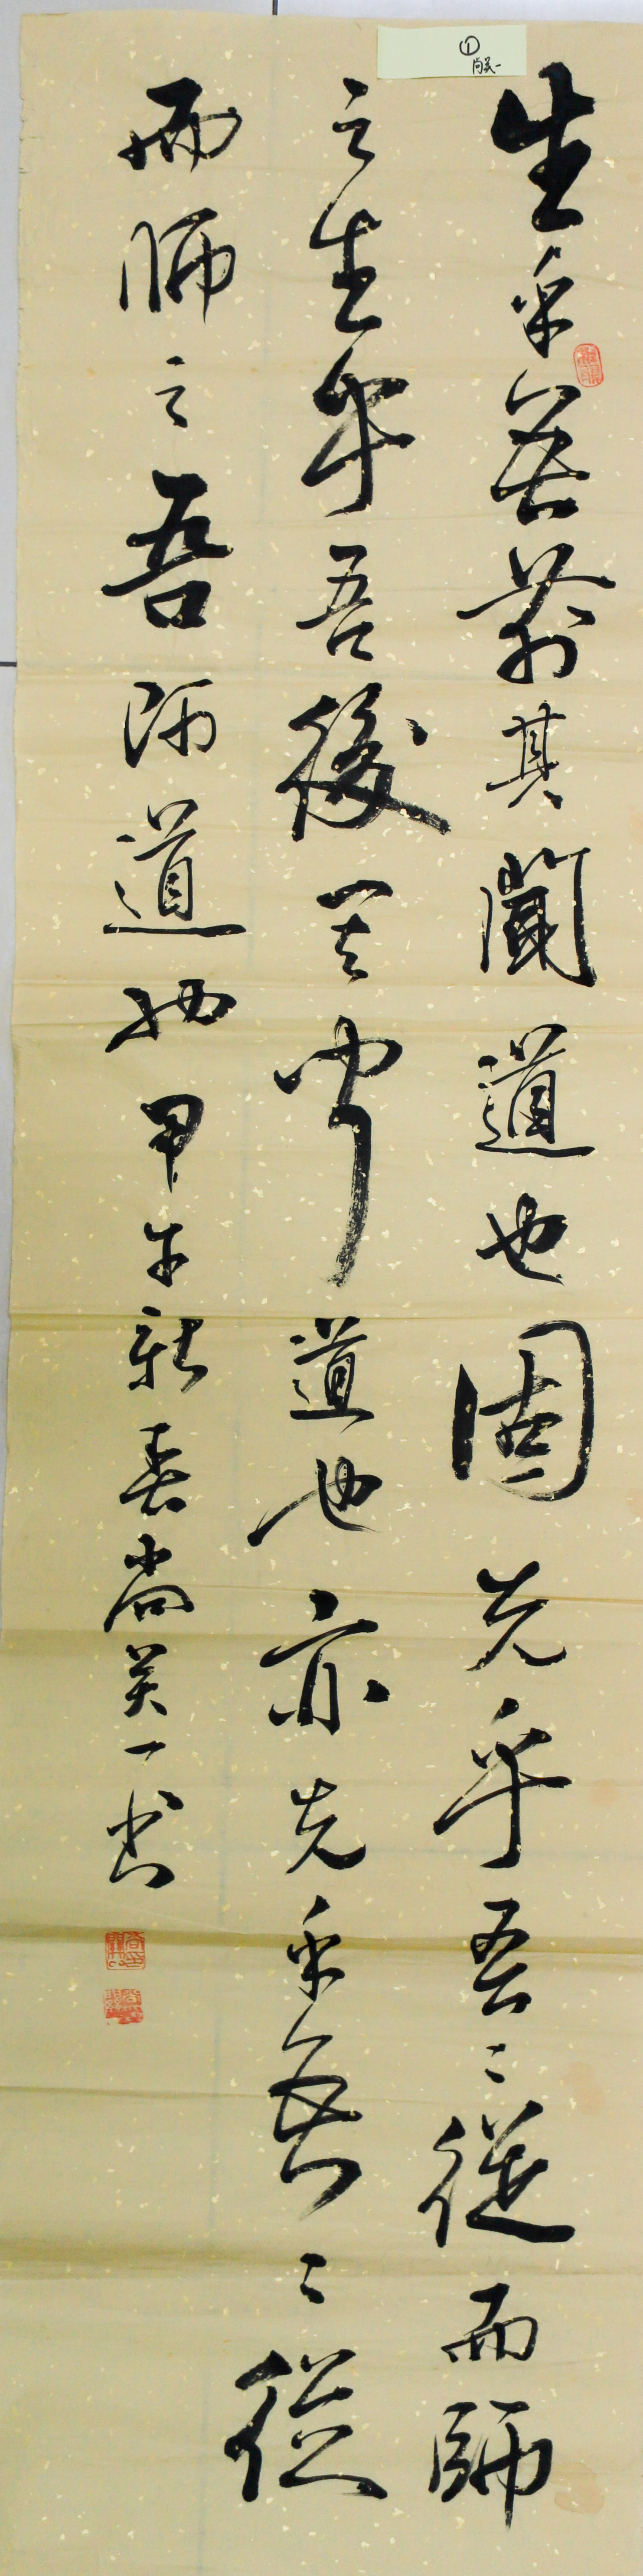 ①
尚英一
生乎吾前其聞道也固先乎吾々從而師
之生乎吾後其聞道也亦先乎吾々從
而師之吾師道也甲午新春尚英一書